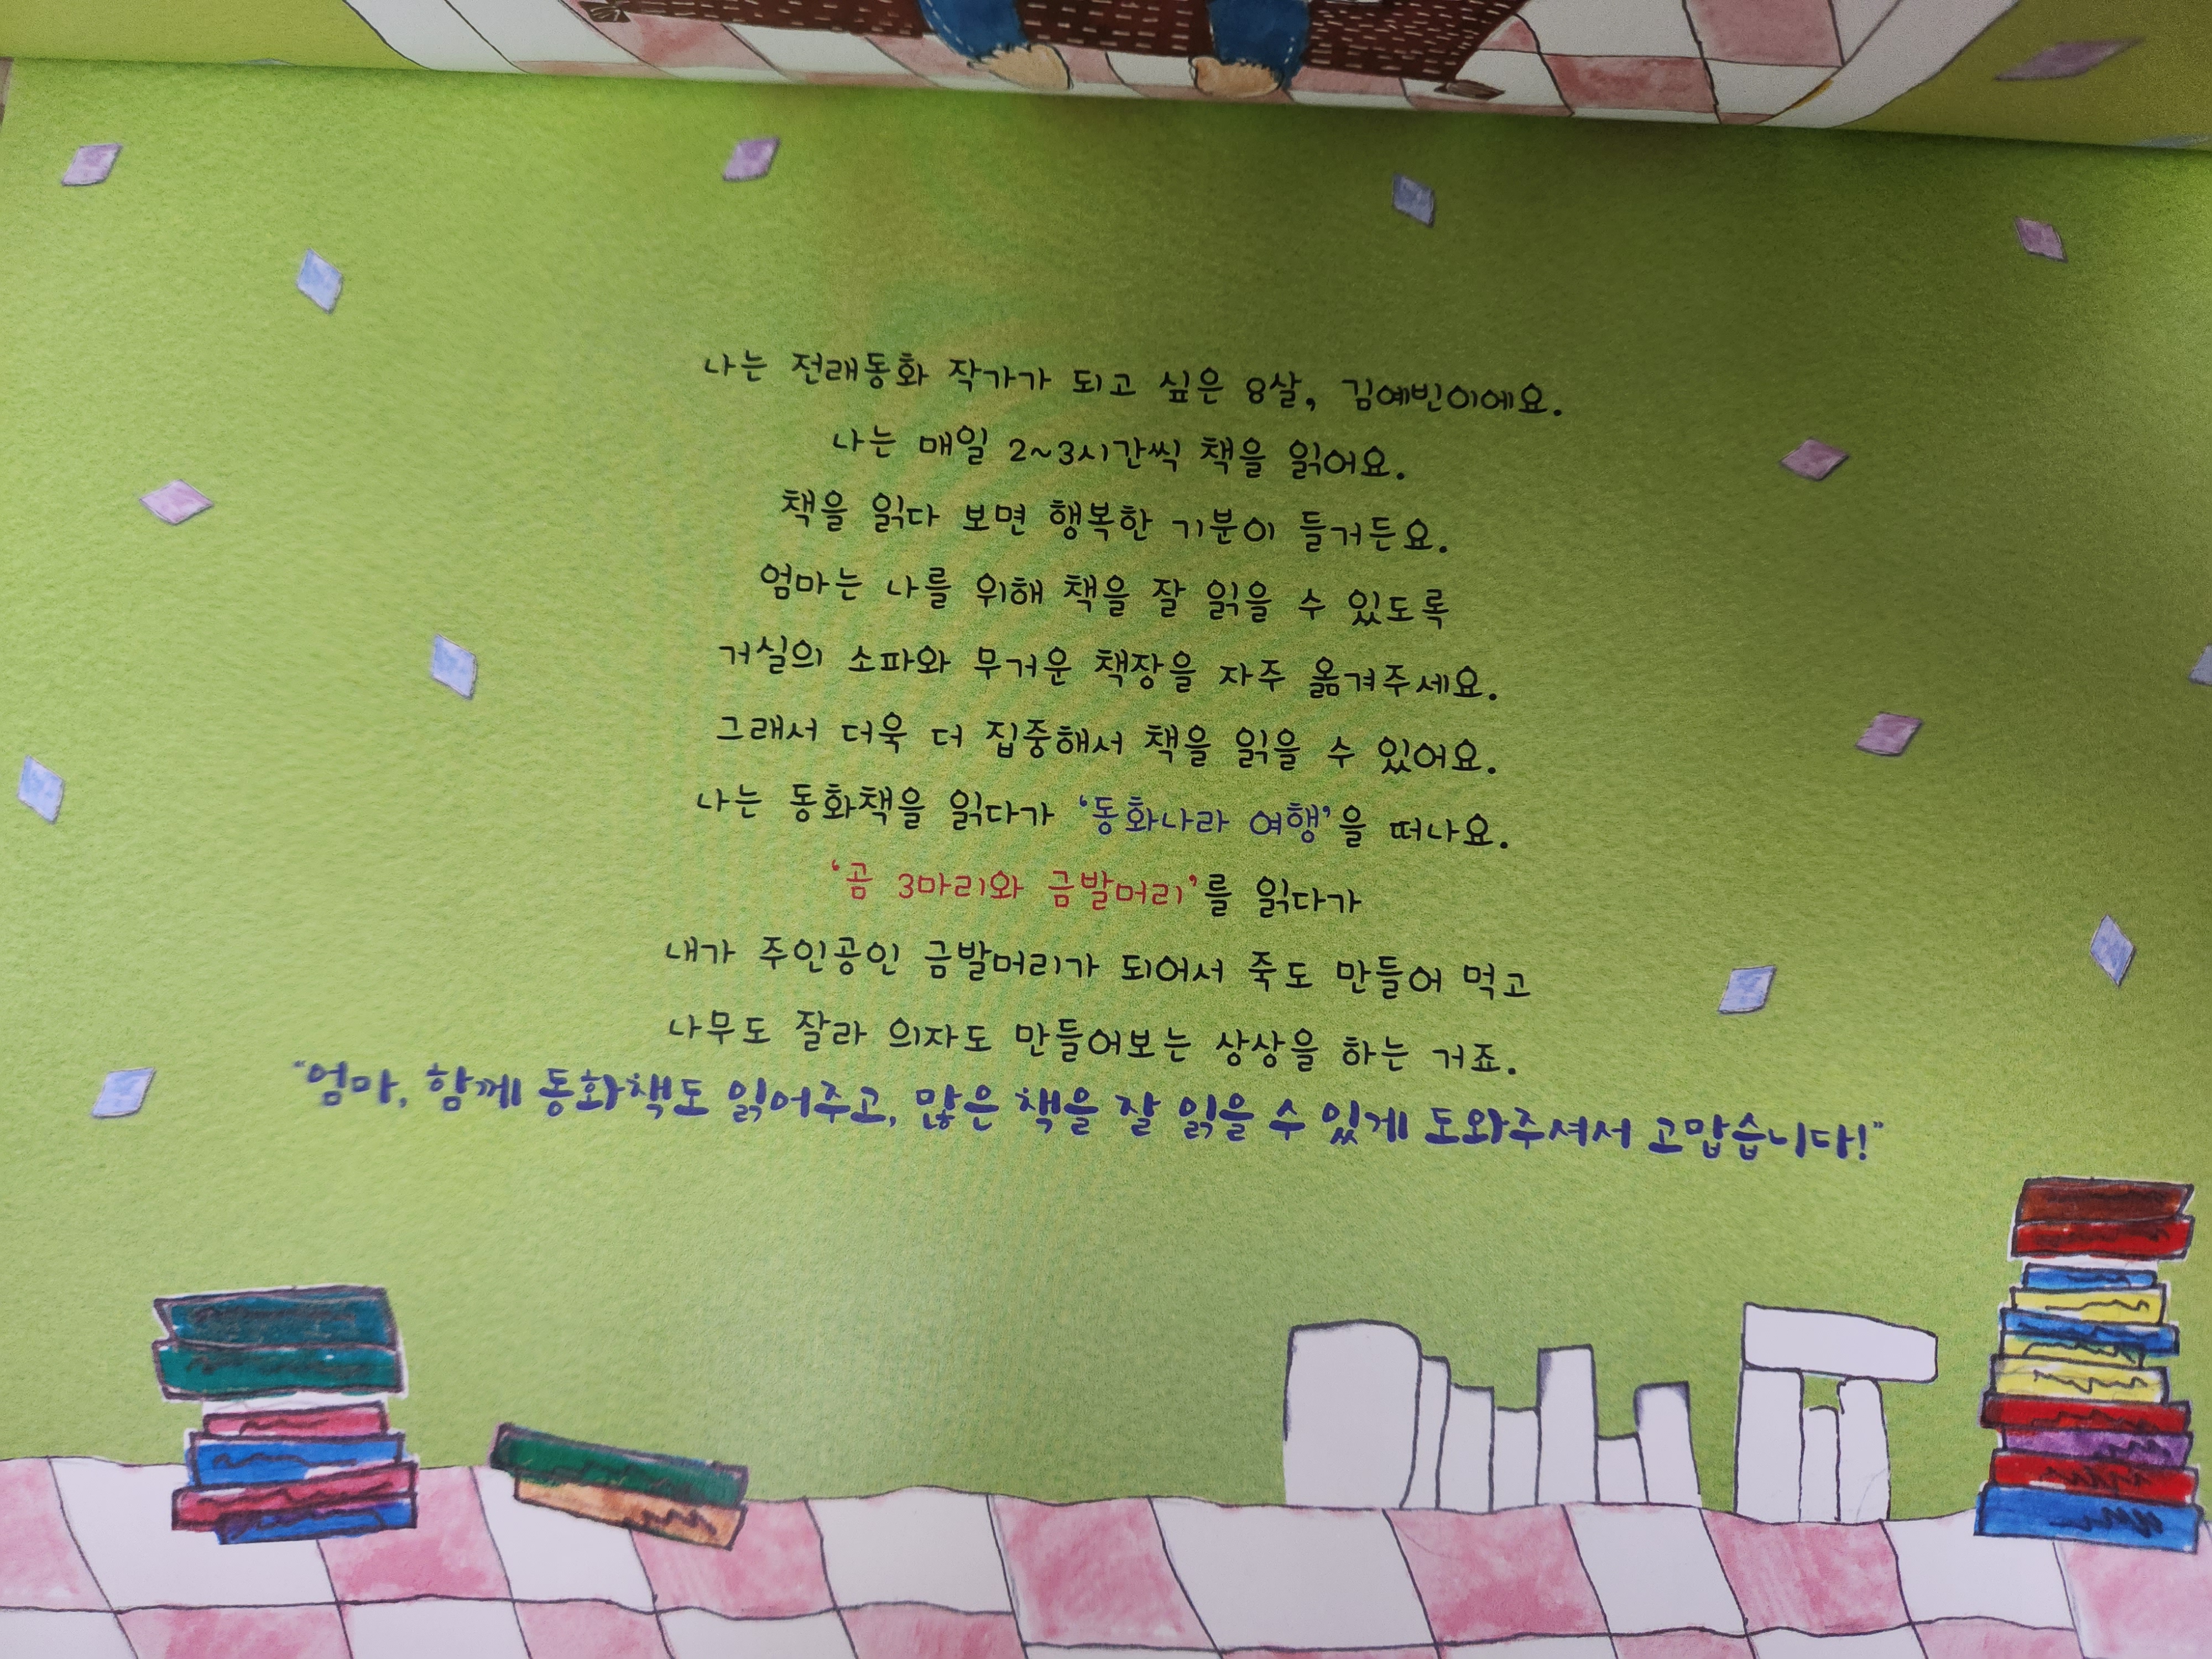 나는 전래동화 작가가 되고 싶은 8살, 김예빈이에요.
나는 매일 2~3시간씩 책을 읽어요.
책을 읽다 보면 행복한 기분이 들거든요.
엄마는 나를 위해 책을 잘 읽을 수 있도록
거실의 소파와 무거운 책장을 자주 옮겨주세요.
그래서 더욱 더 집중해서 책을 읽을 수 있어요.
나는 동화책을 읽다가 '동화나라 여행'을 떠나요.
'곰 3마리와 금발머리'를 읽다가
내가 주인공인 금발머리가 되어서 죽도 만들어 먹고
나무도 잘라 의자도 만들어보는 상상을 하는 거죠.
"엄마, 함께 동화책도 읽어주고, 많은 책을 잘 읽을 수 있게 도와주셔서 고맙습니다!"